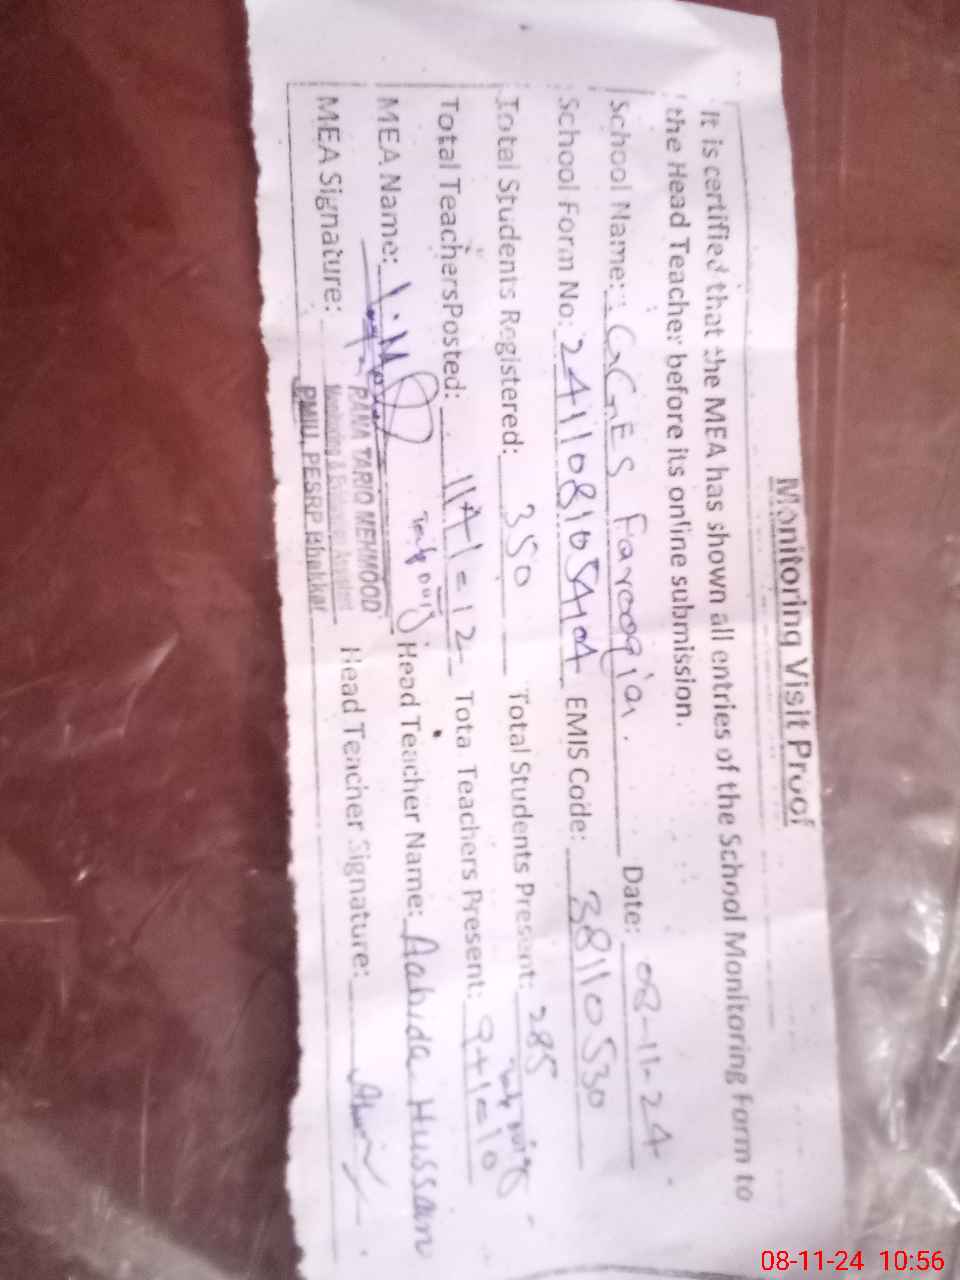 Monitoring Visit Proof
It is certified that the MEA has shown all entries of the School Monitoring Form to
the Head Teacher before its online submission.
School Name: GGES Farooqia. Date: 08-11-24
School Form No: EMIS Code: 38110530
Total Students Registered: 350 Total Students Present: 285
Total Teachers Posted: 11+1=12 Tota Teachers Present: 9+1=10
MEA Name: Head Teacher Name: Aabida Hussain
MEA Signature: Head Teacher Signature:
RANA TARIQ MEHMOOD
Monitoring & Evaluation Assistant
PMIU, PESRP Bhakkar
08-11-24 10:56